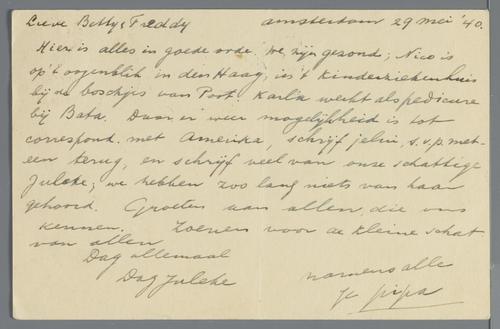 Lieve Betty & Freddy      Amsterdam 29 mei '40.
Hier is alles in goede orde. We zijn gezond; Nico is
op 't oogenblik in den Haag, in 't Kinderziekenhuis
bij de boschjes van Poot. Karla werkt als pedicure
bij Bata. Daar er weer mogelijkheid is tot
correspond. met Amerika, schrijf s.v.p. met-
een terug, en schrijf veel van onze schattige
Juleke; we hebben zoo lang niets van haar
gehoord. Groeten aan allen, die ons
kennen. Zoenen voor de kleine schat
van allen
Dag allemaal
Dag Juleke
namens alle
Je pipa